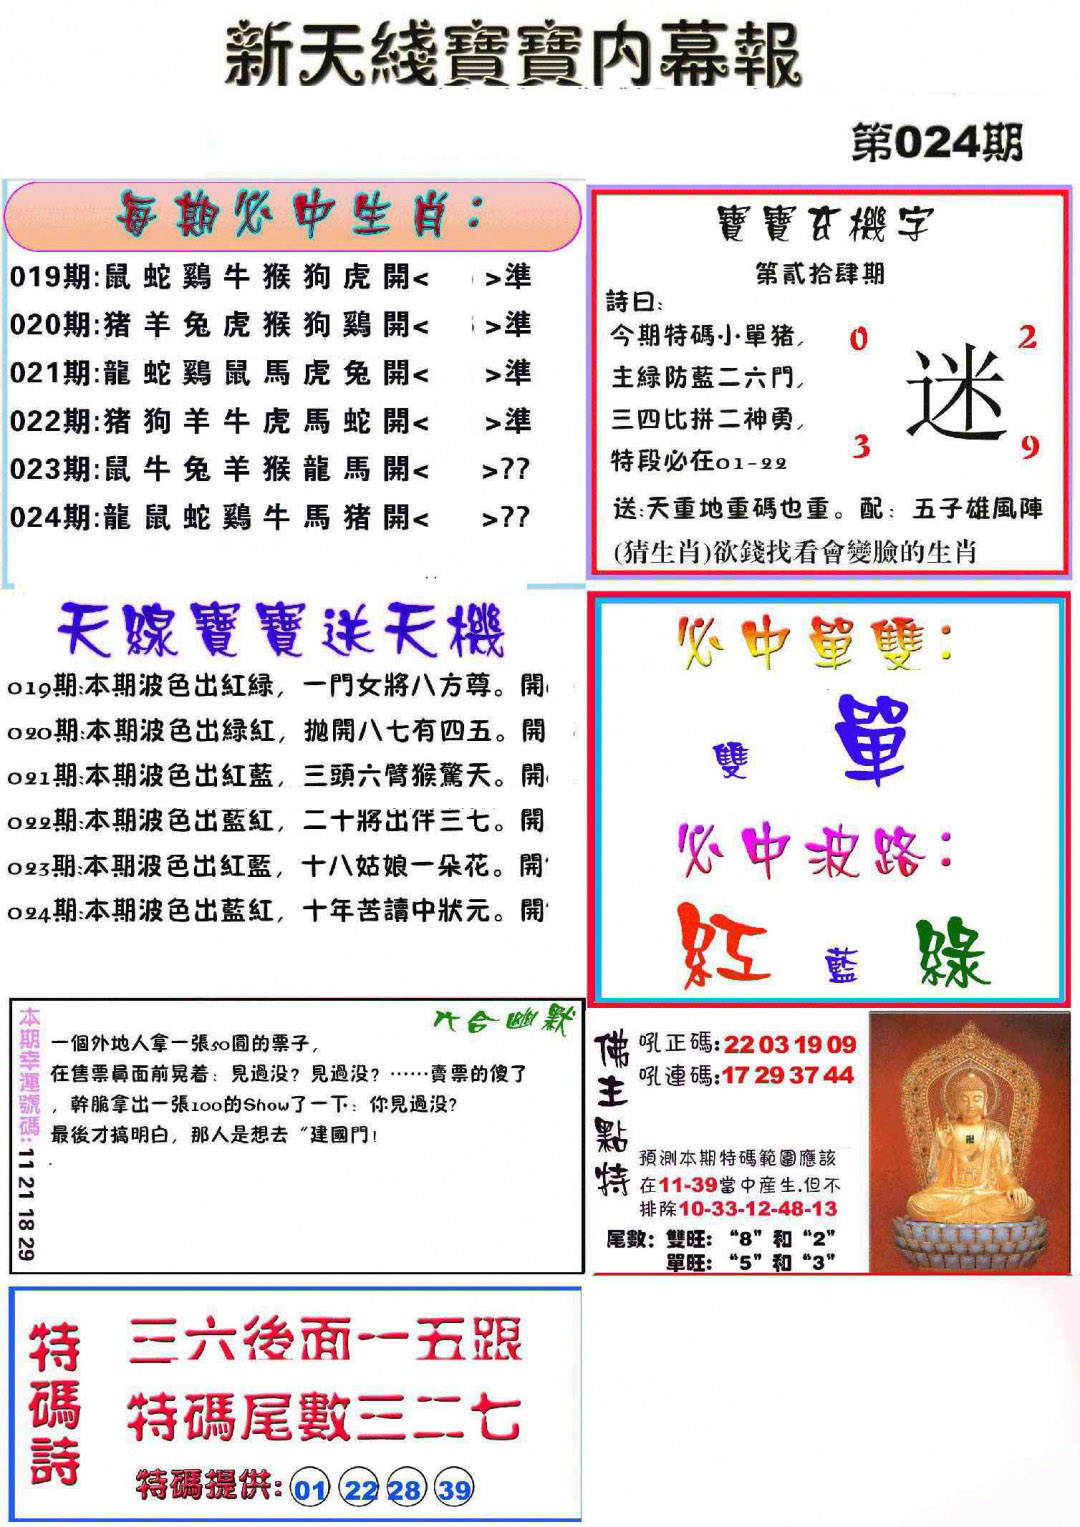 新天綫寶寶内幕報
第024期
每期必中生肖：
019期:鼠 蛇 鷄 牛 猴 狗 虎 開< >準
020期:猪 羊 兔 虎 猴 狗 鷄 開< >準
021期:龍 蛇 鷄 鼠 馬 虎 兔 開< >準
022期:猪 狗 羊 牛 虎 馬 蛇 開< >準
023期:鼠 牛 兔 羊 猴 龍 馬 開< >??
024期:龍 鼠 蛇 鷄 牛 馬 猪 開< >??
寶寶玄機字
第貳拾肆期
詩曰:
今期特碼小單猪,
主綠防藍二六門,
三四比拼二神勇,
特段必在01-22
0 2
迷
3 9
送:天重地重碼也重。配：五子雄風陣
(猜生肖)欲錢找看會變臉的生肖
天線寶寶送天機
019期:本期波色出紅緑，一門女將八方尊。開
020期:本期波色出緑紅，拋開八七有四五。開
021期:本期波色出紅藍，三頭六臂猴驚天。開
022期:本期波色出藍紅，二十將出伴三七。開
023期:本期波色出紅藍，十八姑娘一朵花。開
024期:本期波色出藍紅，十年苦讀中狀元。開
必中單雙：
雙 單
必中波路：
紅 藍 綠
本期幸運號碼: 11 21 18 29
六合幽默
一個外地人拿一張50圓的票子,
在售票員面前晃着：見過没？見過没？……賣票的傻了
，幹脆拿出一張100的Show了一下：你見過没?
最後才搞明白，那人是想去“建國門!
佛主點特
吼正碼:22 03 19 09
吼連碼:17 29 37 44
預測本期特碼範圍應該
在11-39當中産生.但不
排除10-33-12-48-13
尾數：雙旺：“8”和“2”
單旺：“5”和“3”
特碼詩
三六後面一五跟
特碼尾數三二七
特碼提供: 01 22 28 39